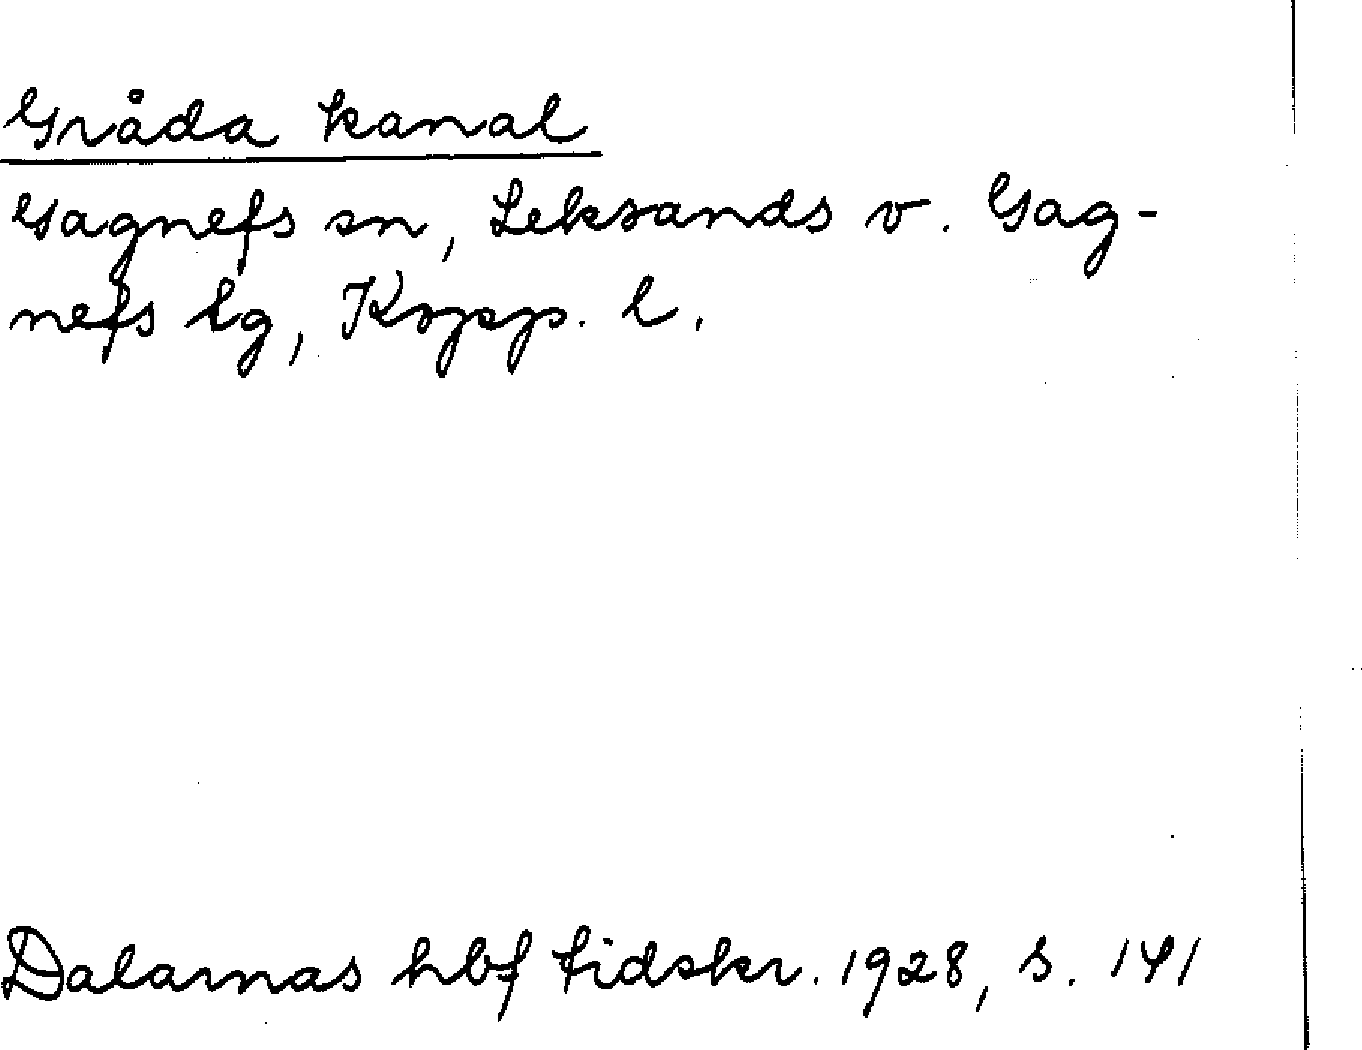 Gråda kanal
Gagnefs sn, Leksands v. Gag-
nefs lg, Kopp. l.
Dalarnas hbf tidskr. 1928, s. 141